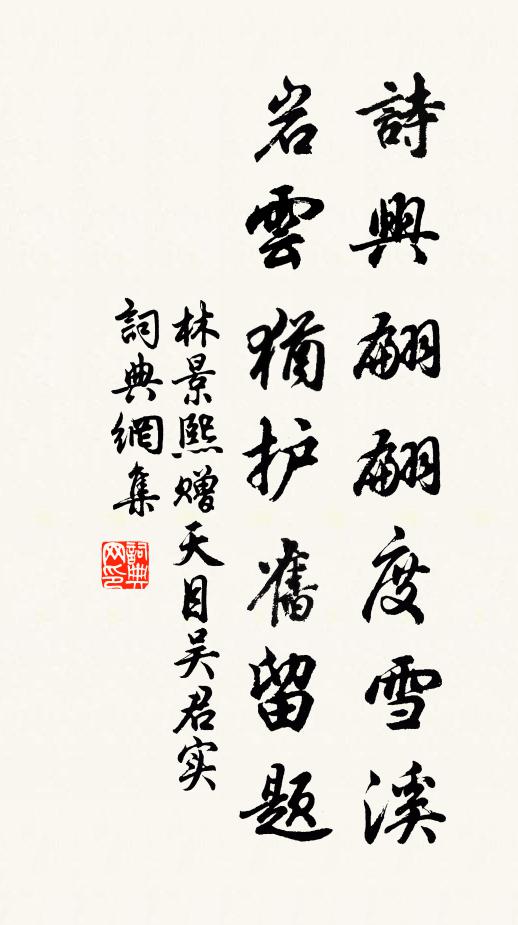 詩興翩翩度雪溪
岩雲猶护舊留題
林景熙赠天目吴君实
詞典網集
詞典网印